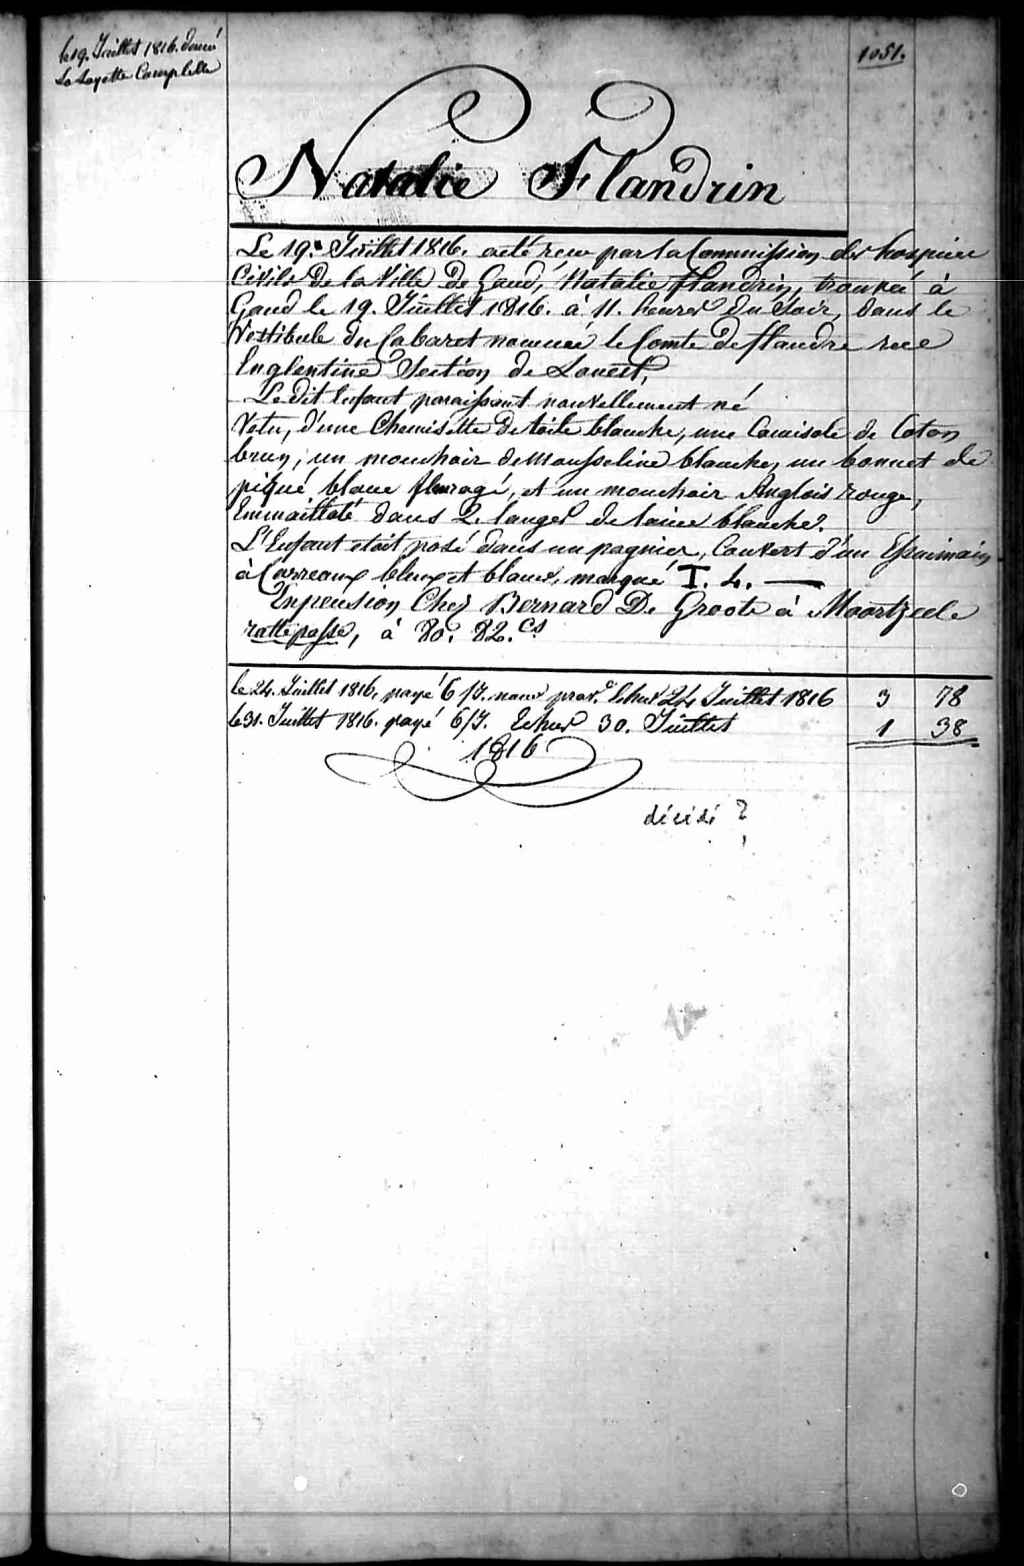 le 19. Juillet 1816. donné
La Layette Complette
1051.
Natalie Flandrin
Le 19. Juillet 1816. a été recu par la Commission des hospices
Civils de la Ville de Gand, Natalie flandrin, trouvéé à
Gand le 19. Juillet 1816. à 11. heures du Soir, dans le
Vestibule du Cabaret nommée le Comte de flandre rue
Englentine Section de Louest,
Le dit Enfant paraissant nouvellement né
Vetu, d'une Chemisette de toile blanche, une Camisole de Coton
brun, un mouchoir de Mousseline blanche, un bonnet de
piqué blanc fleuragé, et un mouchoir Anglois rouge,
Emmailloté dans 2. langes de laine blanche.
L'Enfant etoit posé dans un pagnier, Couvert d'un Essuimain
à Carreaux bleux et blancs, marqué I. L.
Enpension Chez Bernard De Groote à Moortzeele
rattepasse, à 80. 82. cs
le 24. Juillet 1816, payé 6/J. nouv. prov. Echus 24 Juillet 1816 3 78
le 31. Juillet 1816. payé 6/J. Echus 30. Juillet 1 38
1816
décidé ?